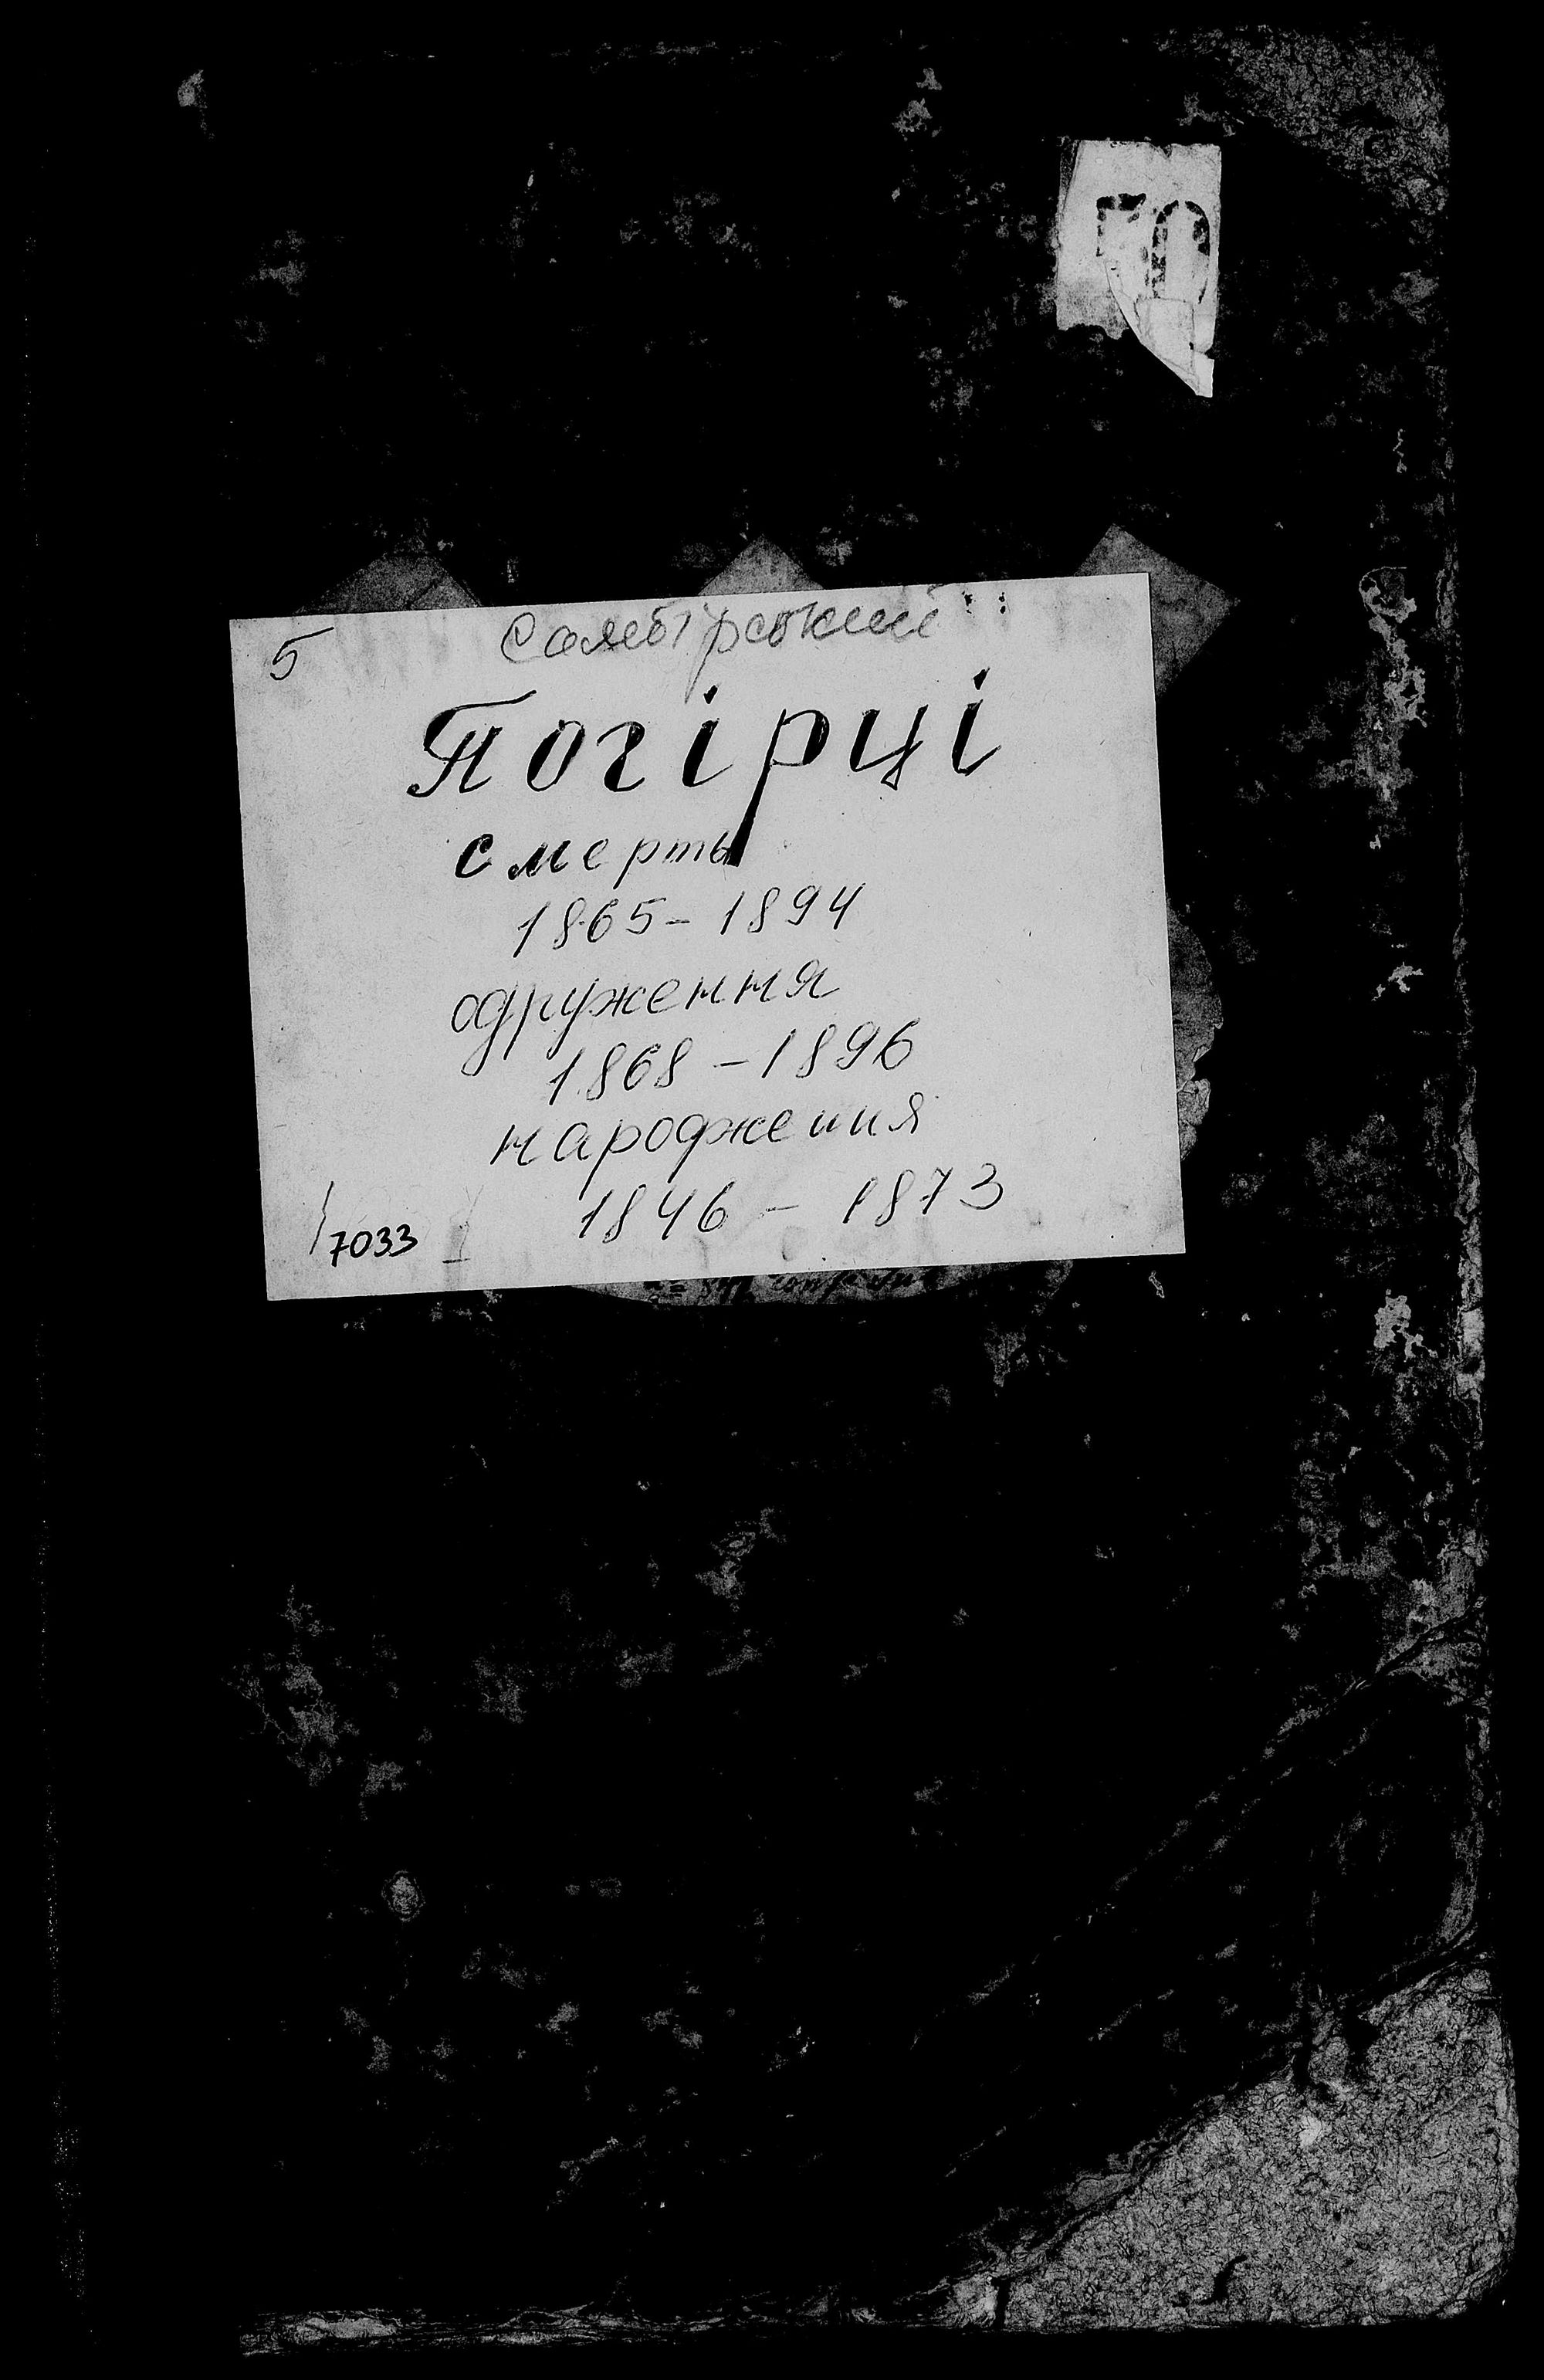 5
Самбірський
Погірці
смерть
1865-1894
одруження
1868-1896
народження
1846-1873
7033